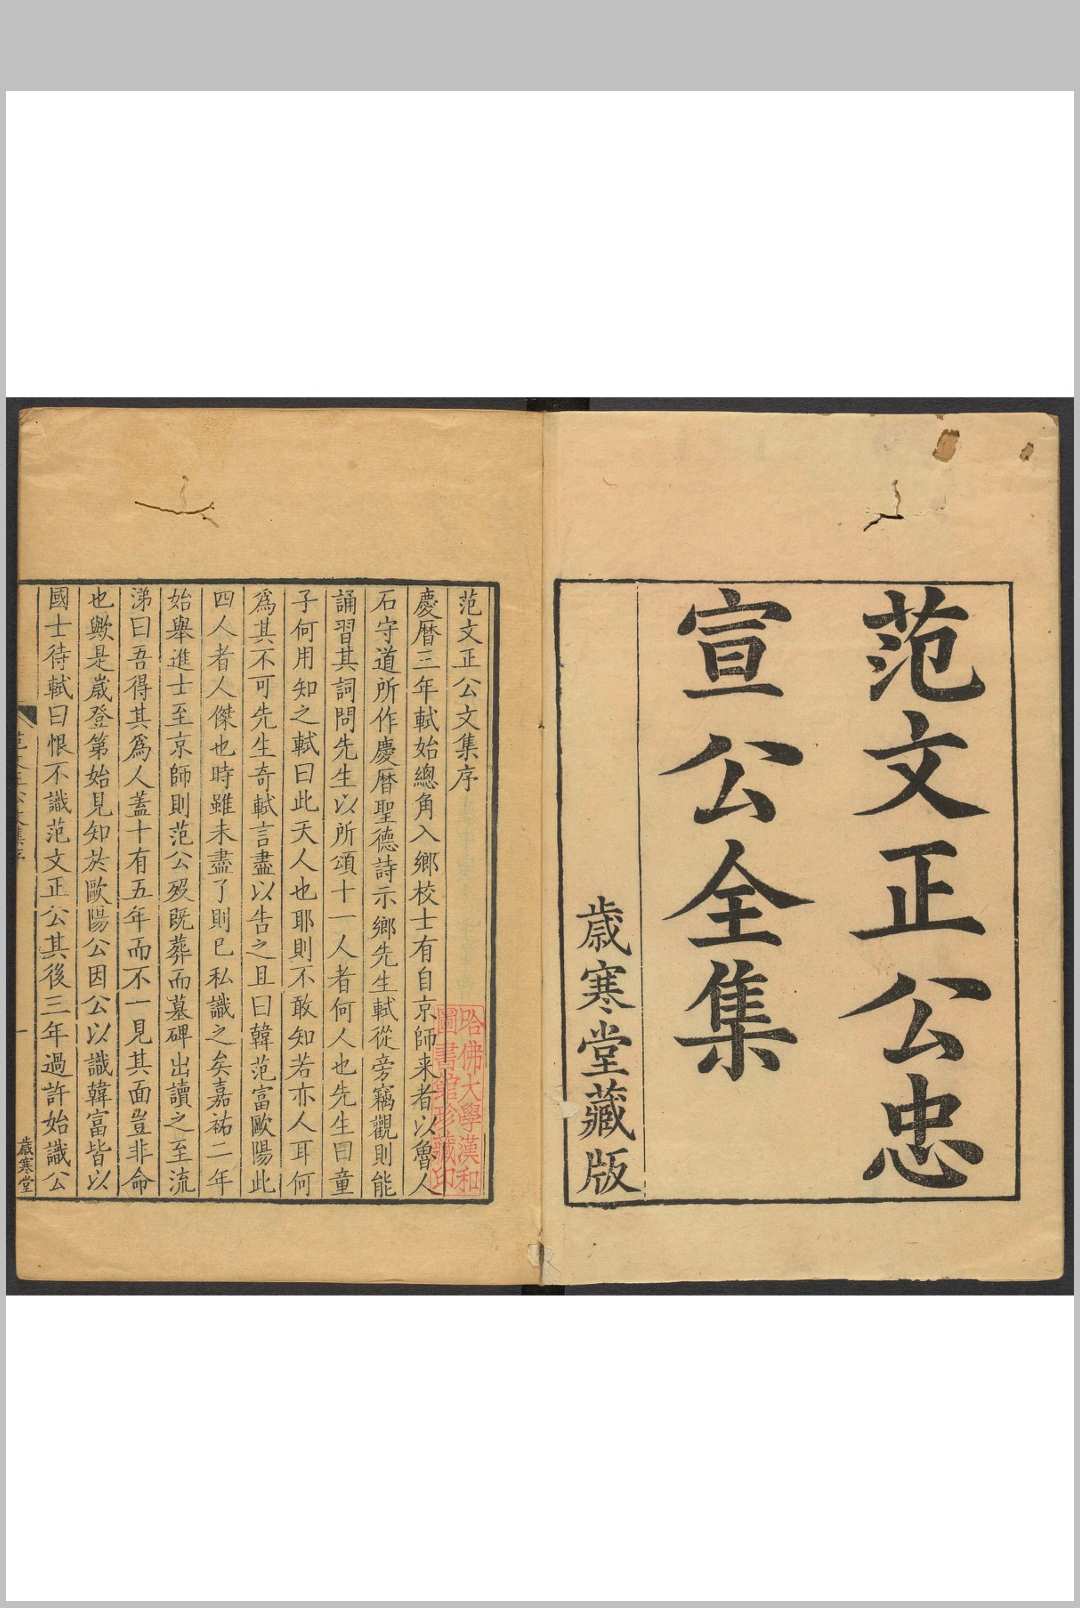 范文正公忠
宣公全集
歲寒堂藏版
范文正公文集序
慶曆三年軾始總角入鄉校士有自京師来者以魯人
石守道所作慶曆聖德詩示鄉先生軾從旁竊觀則能
誦習其詞問先生以所頌十一人者何人也先生曰童
子何用知之軾曰此天人也耶則不敢知若亦人耳何
爲其不可先生奇軾言盡以告之且曰韓范富歐陽此
四人者人傑也時雖未盡了則已私識之矣嘉祐二年
始舉進士至京師則范公歿既葬而墓碑出讀之至流
涕曰吾得其爲人葢十有五年而不一見其面豈非命
也歟是歲登第始見知於歐陽公因公以識韓富皆以
國士待軾曰恨不識范文正公其後三年過許始識公
范文正公文集序
一
歲寒堂
哈佛大學漢和
圖書館珍藏印